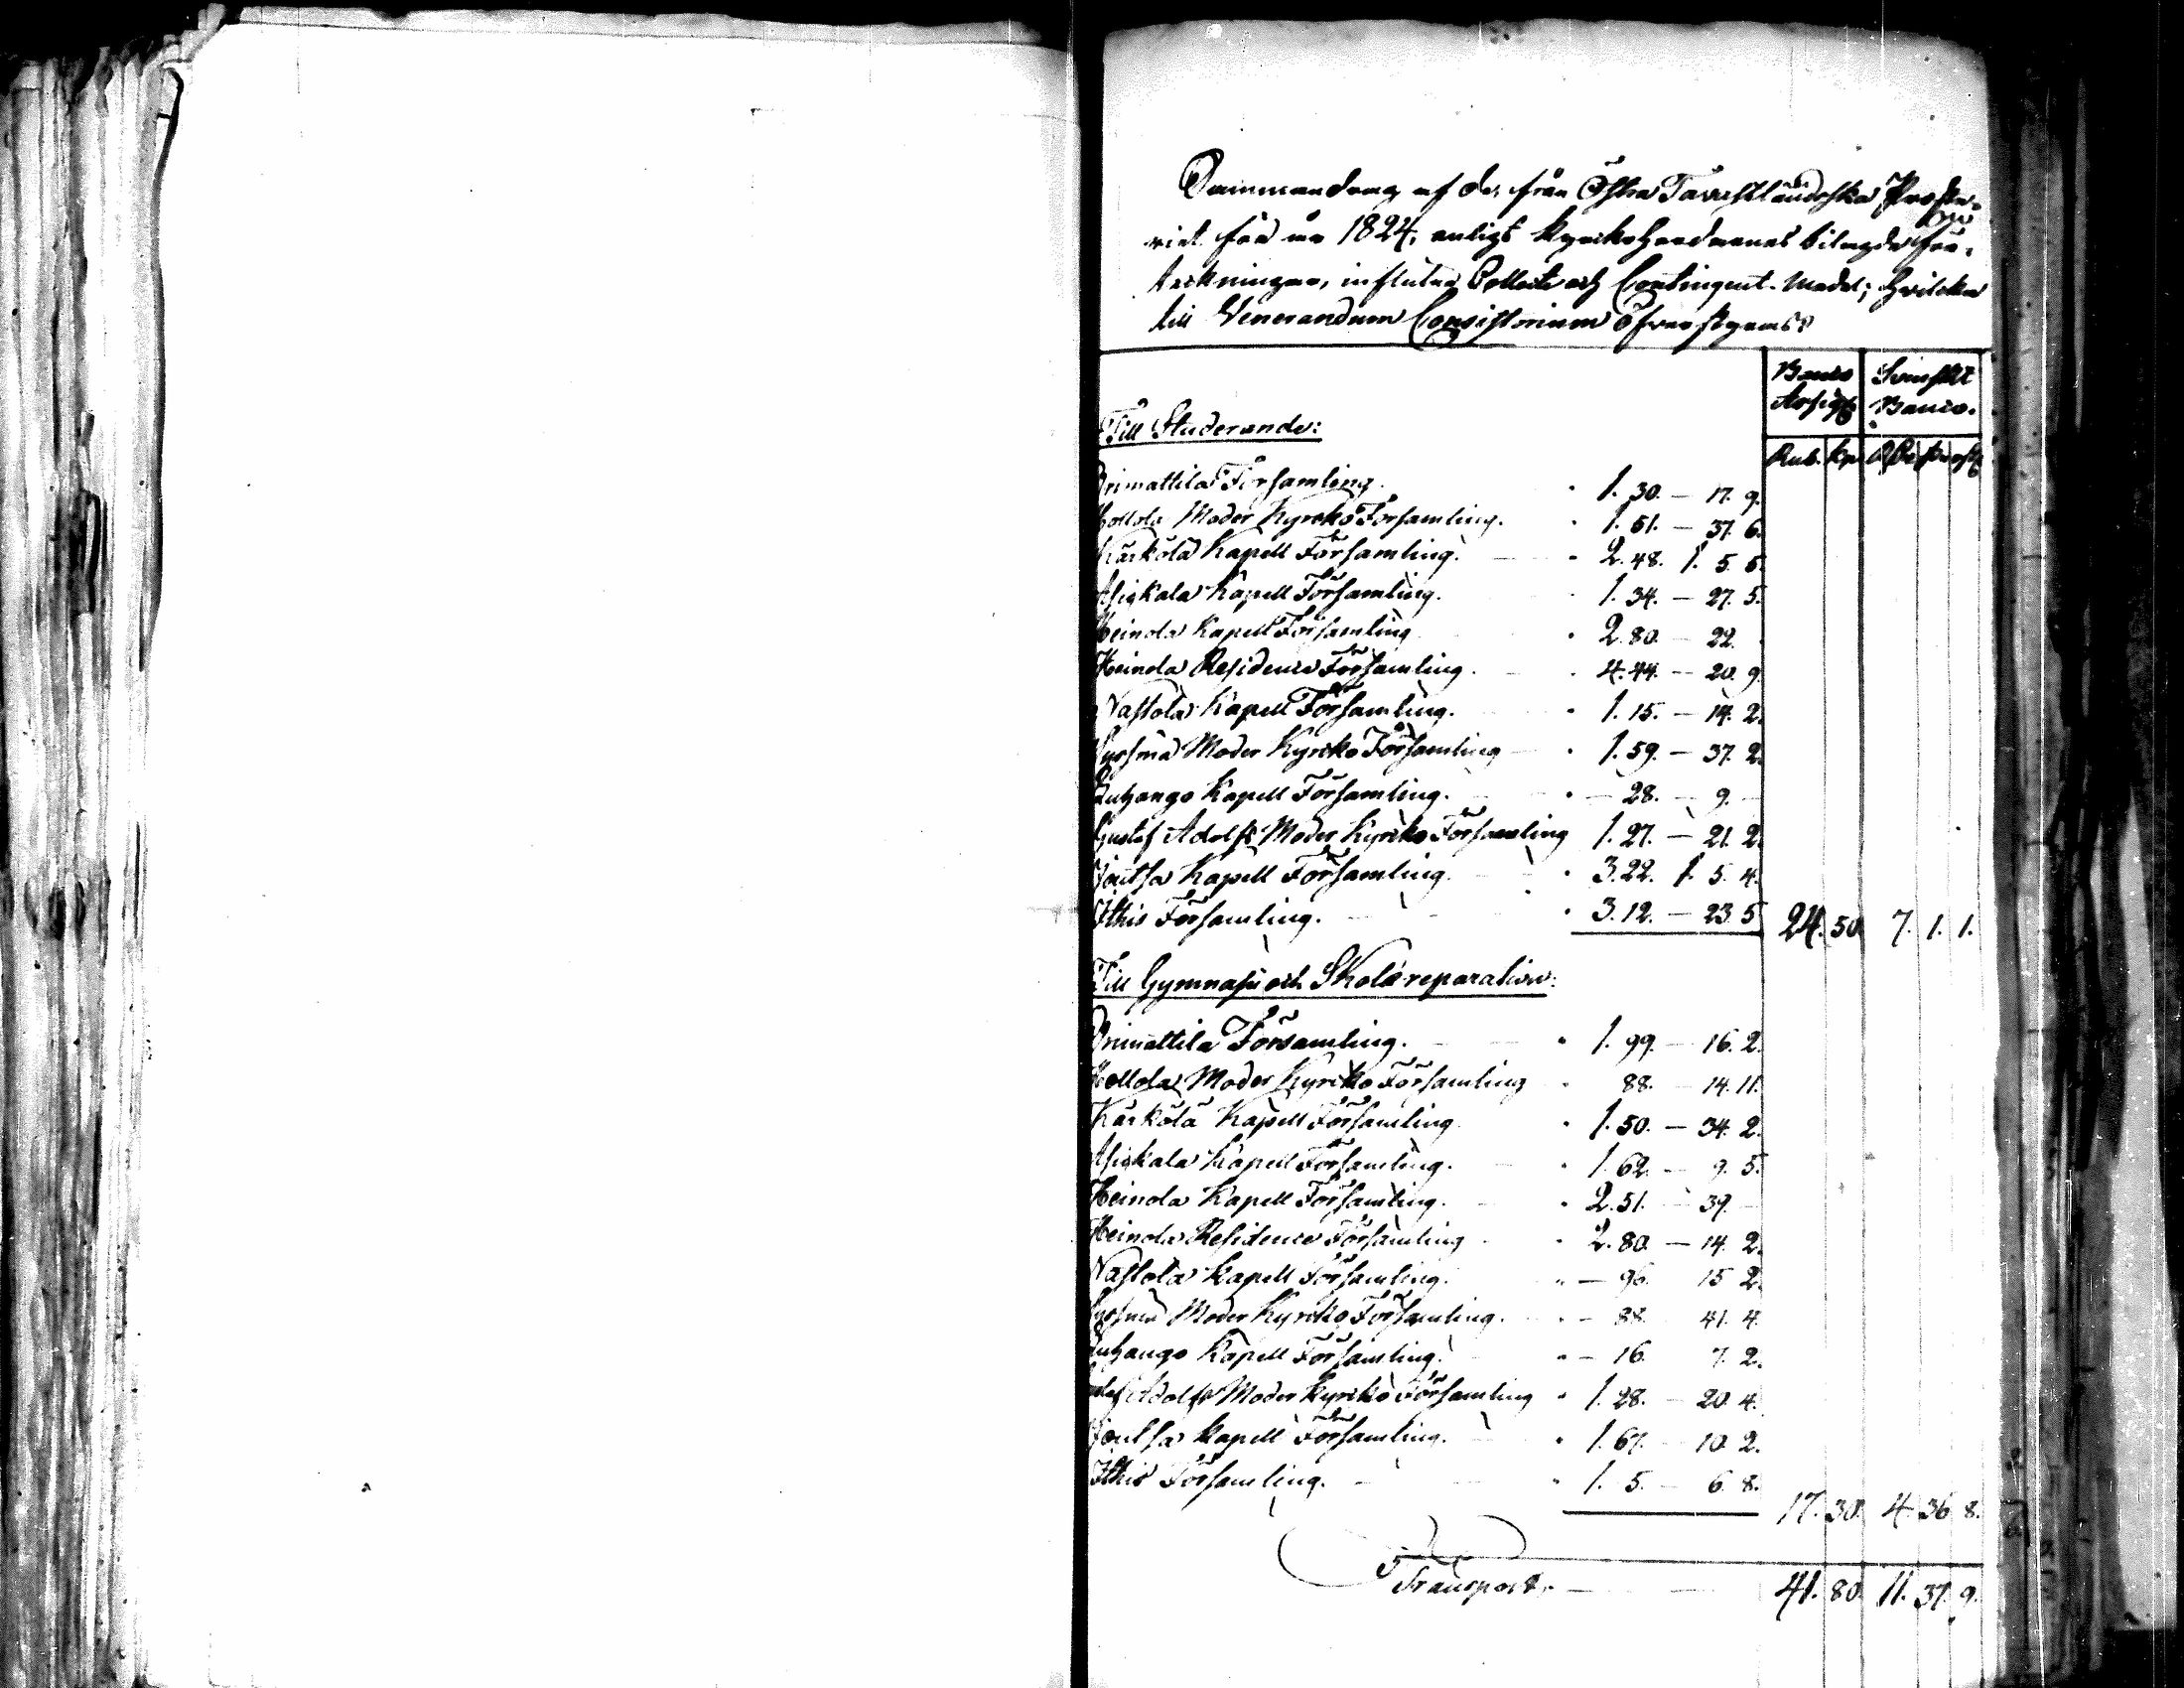 Sammandrag af de från Östra Tavastländska Proste-
riet för år 1824, enligt Kyrkoherdarnes bilagde för-
tekningar, influtna Collect och Contingent-Medel; hvilka
till Venerandum Consistorium öfversändes
Banco Assign. Svenskt Banco.
Till Studerande:
Rub. kp. RD sk. rst
Orimattila Församling. 1. 30. — 17. 9.
Hollola Moder Kyrko Församling. 1. 51. — 37. 6.
Kärkölä Kapell Församling. 2. 48. 1. 5. 5.
Asikkala Kapell Församling. 1. 34. — 27. 5.
Heinola Kapell Församling 2. 80. — 22.
Heinola Residence Församling. 4. 44. — 20. 9.
Nastola Kapell Församling. 1. 15. — 14. 2.
Sysmä Moder Kyrko Församling 1. 59. — 37. 2.
Luhango Kapell Församling. — 28. — 9. —
Gustaf Adolfs Moder Kyrko Församling 1. 27. — 21. 2.
Joutsa Kapell Församling. 3. 22. 1. 5. 4.
Ithis Församling. 3. 12. — 23. 5. 24. 50. 7. 1. 1.
Till Gymnasii och Skolæ reparation:
Orimattila Församling. 1. 99. — 16. 2.
Hollola Moder Kyrko Församling 88. — 14. 11.
Kärkölä Kapell Församling 1. 50. — 34. 2.
Asikkala Kapell Församling. 1. 62. — 9. 5.
Heinola Kapell Församling. 2. 51. — 39. —
Heinola Residence Församling 2. 80. — 14. 2.
Nastola Kapell Församling. — 96. 15. 2.
Sysmä Moder Kyrko Församling. — 88. 41. 4.
Luhango Kapell Församling. — 16. 7. 2.
Gustaf Adolfs Moder Kyrko Församling 1. 28. — 20. 4.
Joutsa Kapell Församling. 1. 67. — 10. 2.
Ithis Församling. 1. 5. — 6. 8.
17. 30. 4. 36. 8.
Transport. — 41. 80. 11. 37. 9.